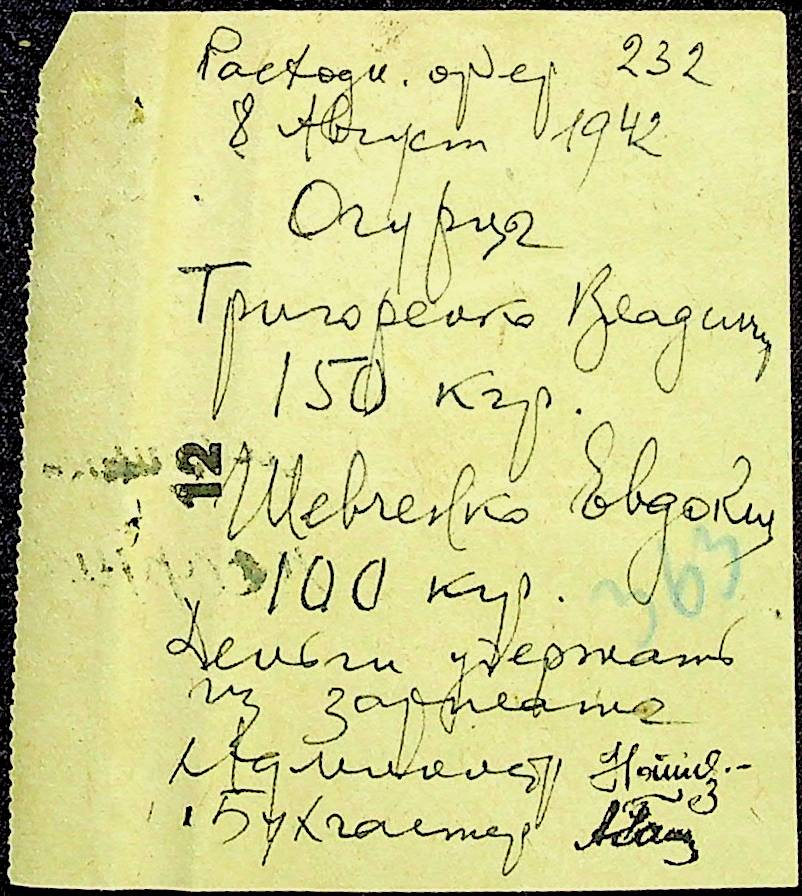 Расходн. ордер 232
8 Август 1942
Огурца
Григоренко Владими
150 кгр.
12
Шевченко Евдоки
100 кгр.
363
Деньги удержать
из зарплата
Администр
Бухгалтер